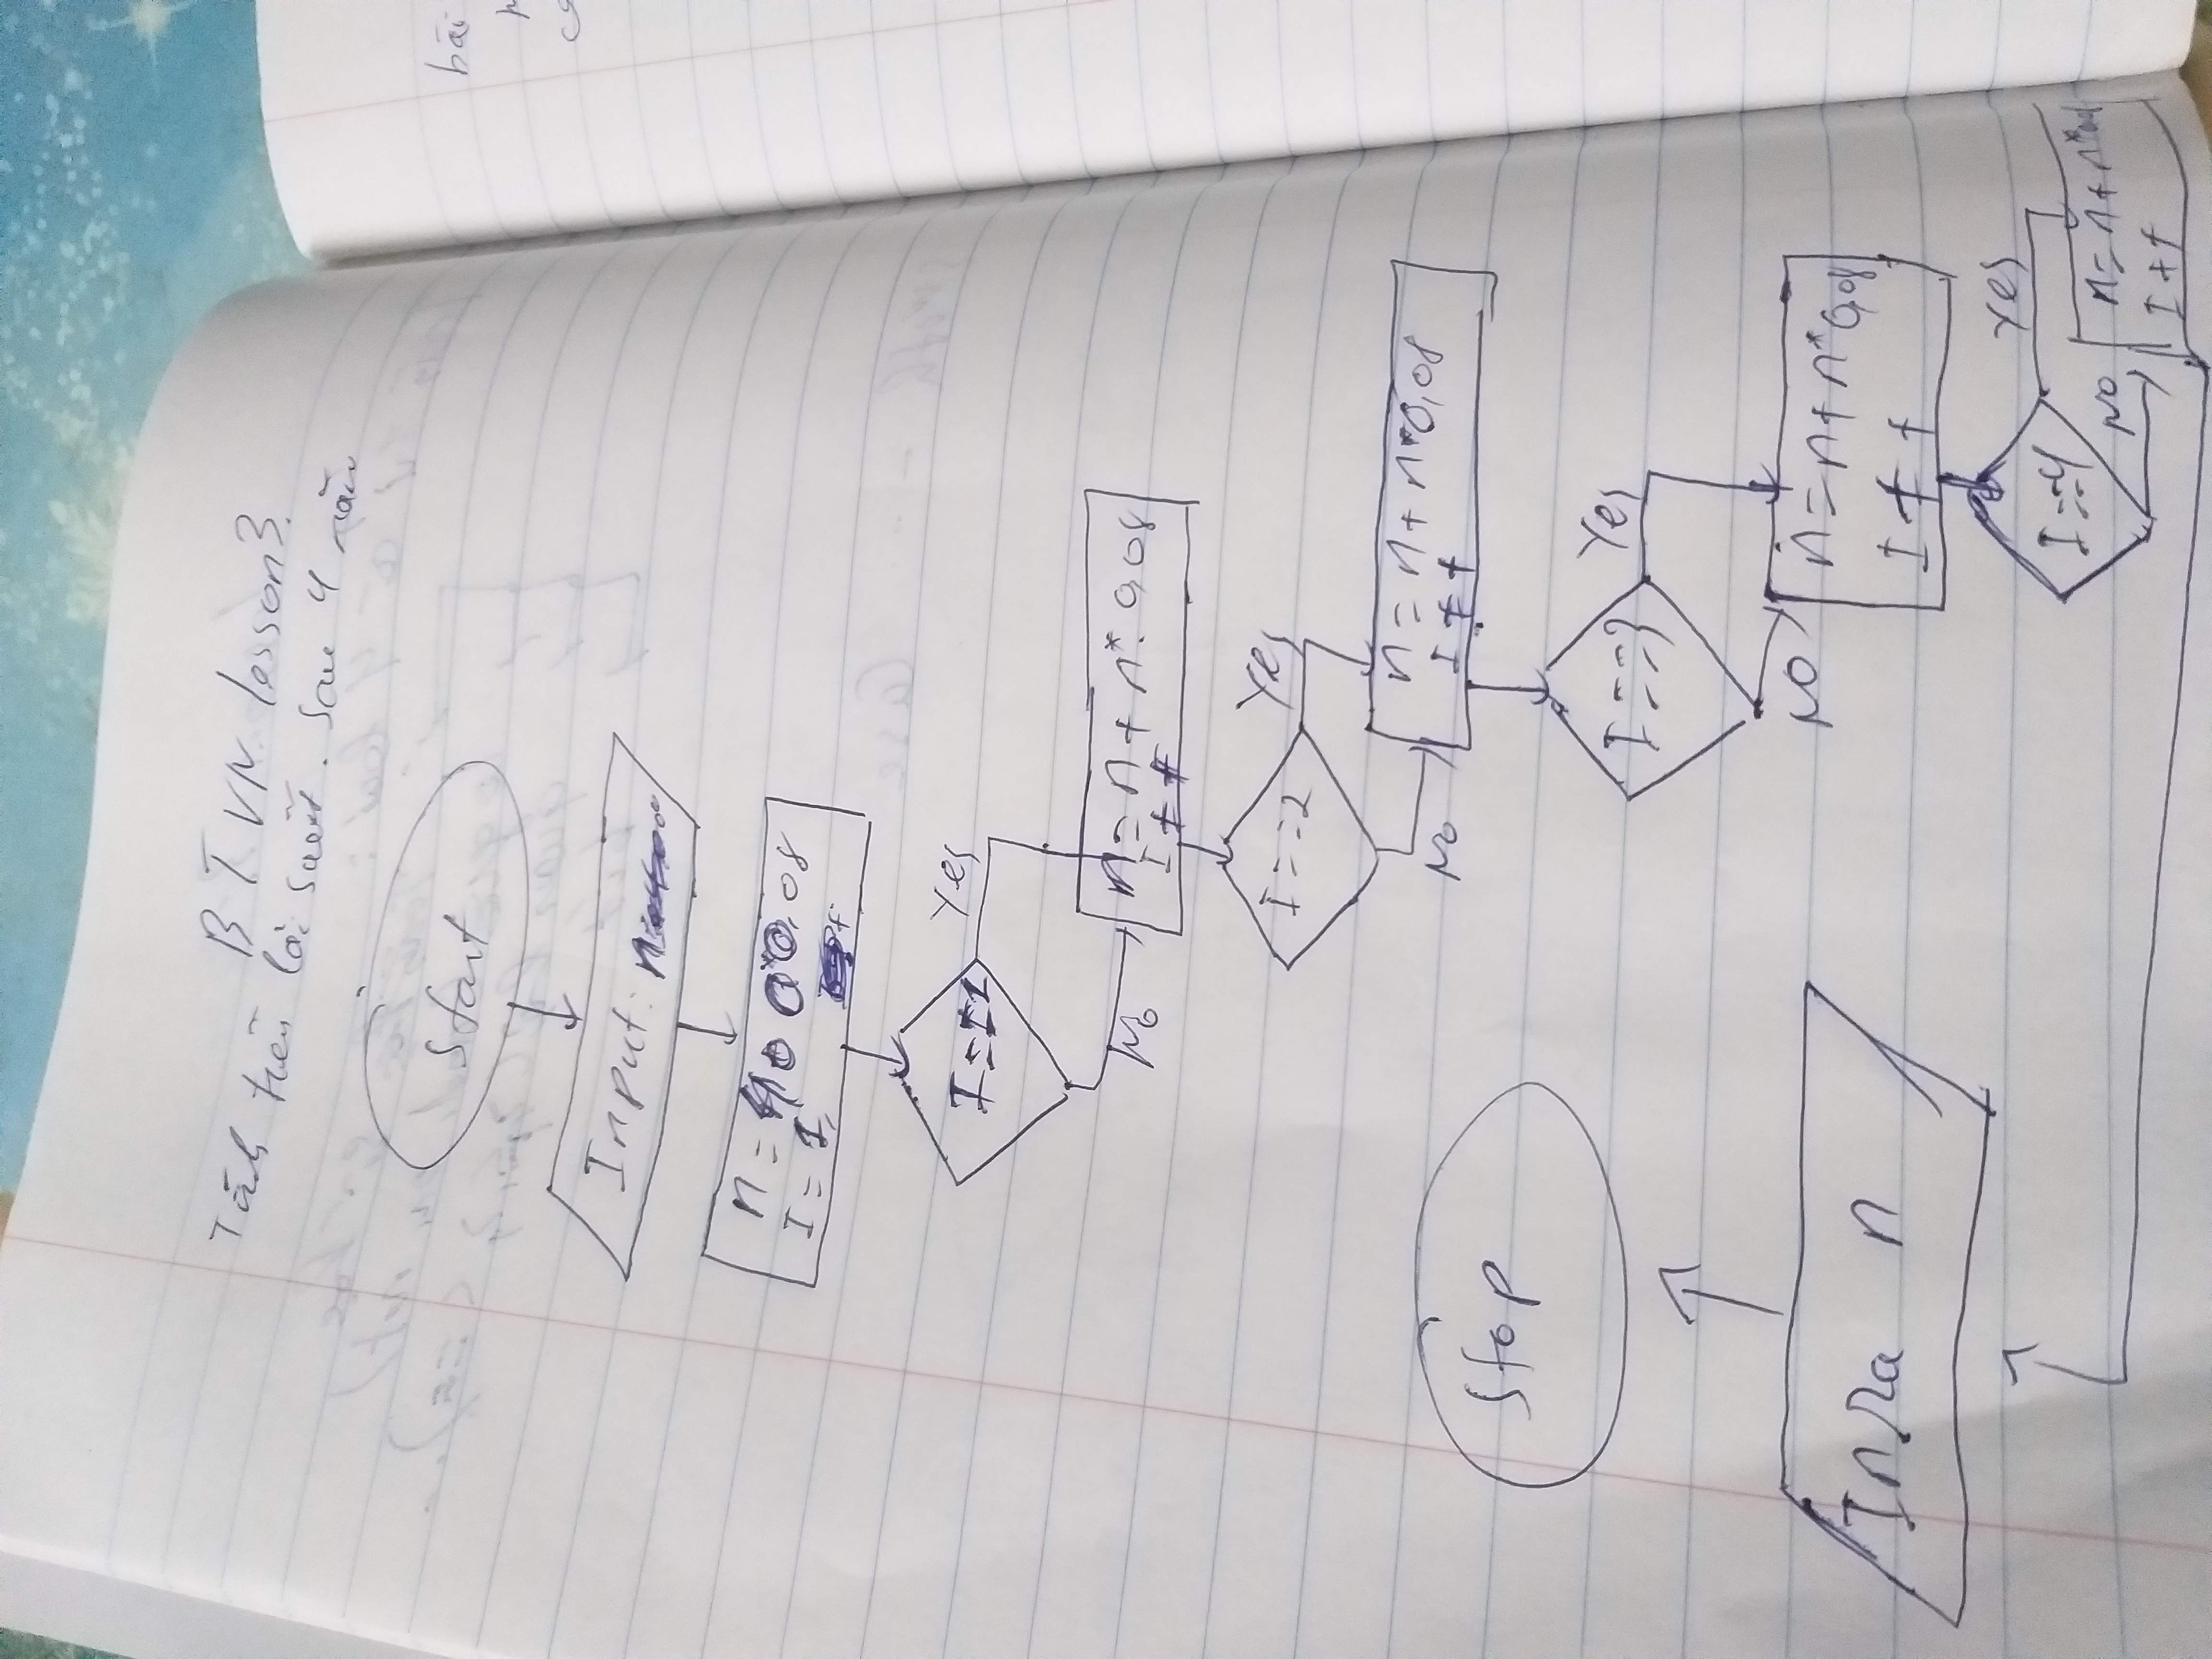 BTVN. lesson 3.
Tính tiền lãi suất. Sau 4 năm
Start
Input: n
n = 0,08
I = 1,
I == 1
Yes
No
n = n + n* 0,08
I ++
I == 2
Yes
No
n = n + n*0,08
I ++
I == 3
Yes
NO
n = n + n* 0,08
I ++
I == 4
Yes
NO
n = n + n*
I ++
In Ra n
Stop
bài